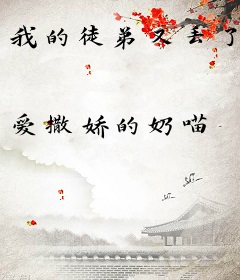 我的徒弟又丢了
爱撒娇的奶喵